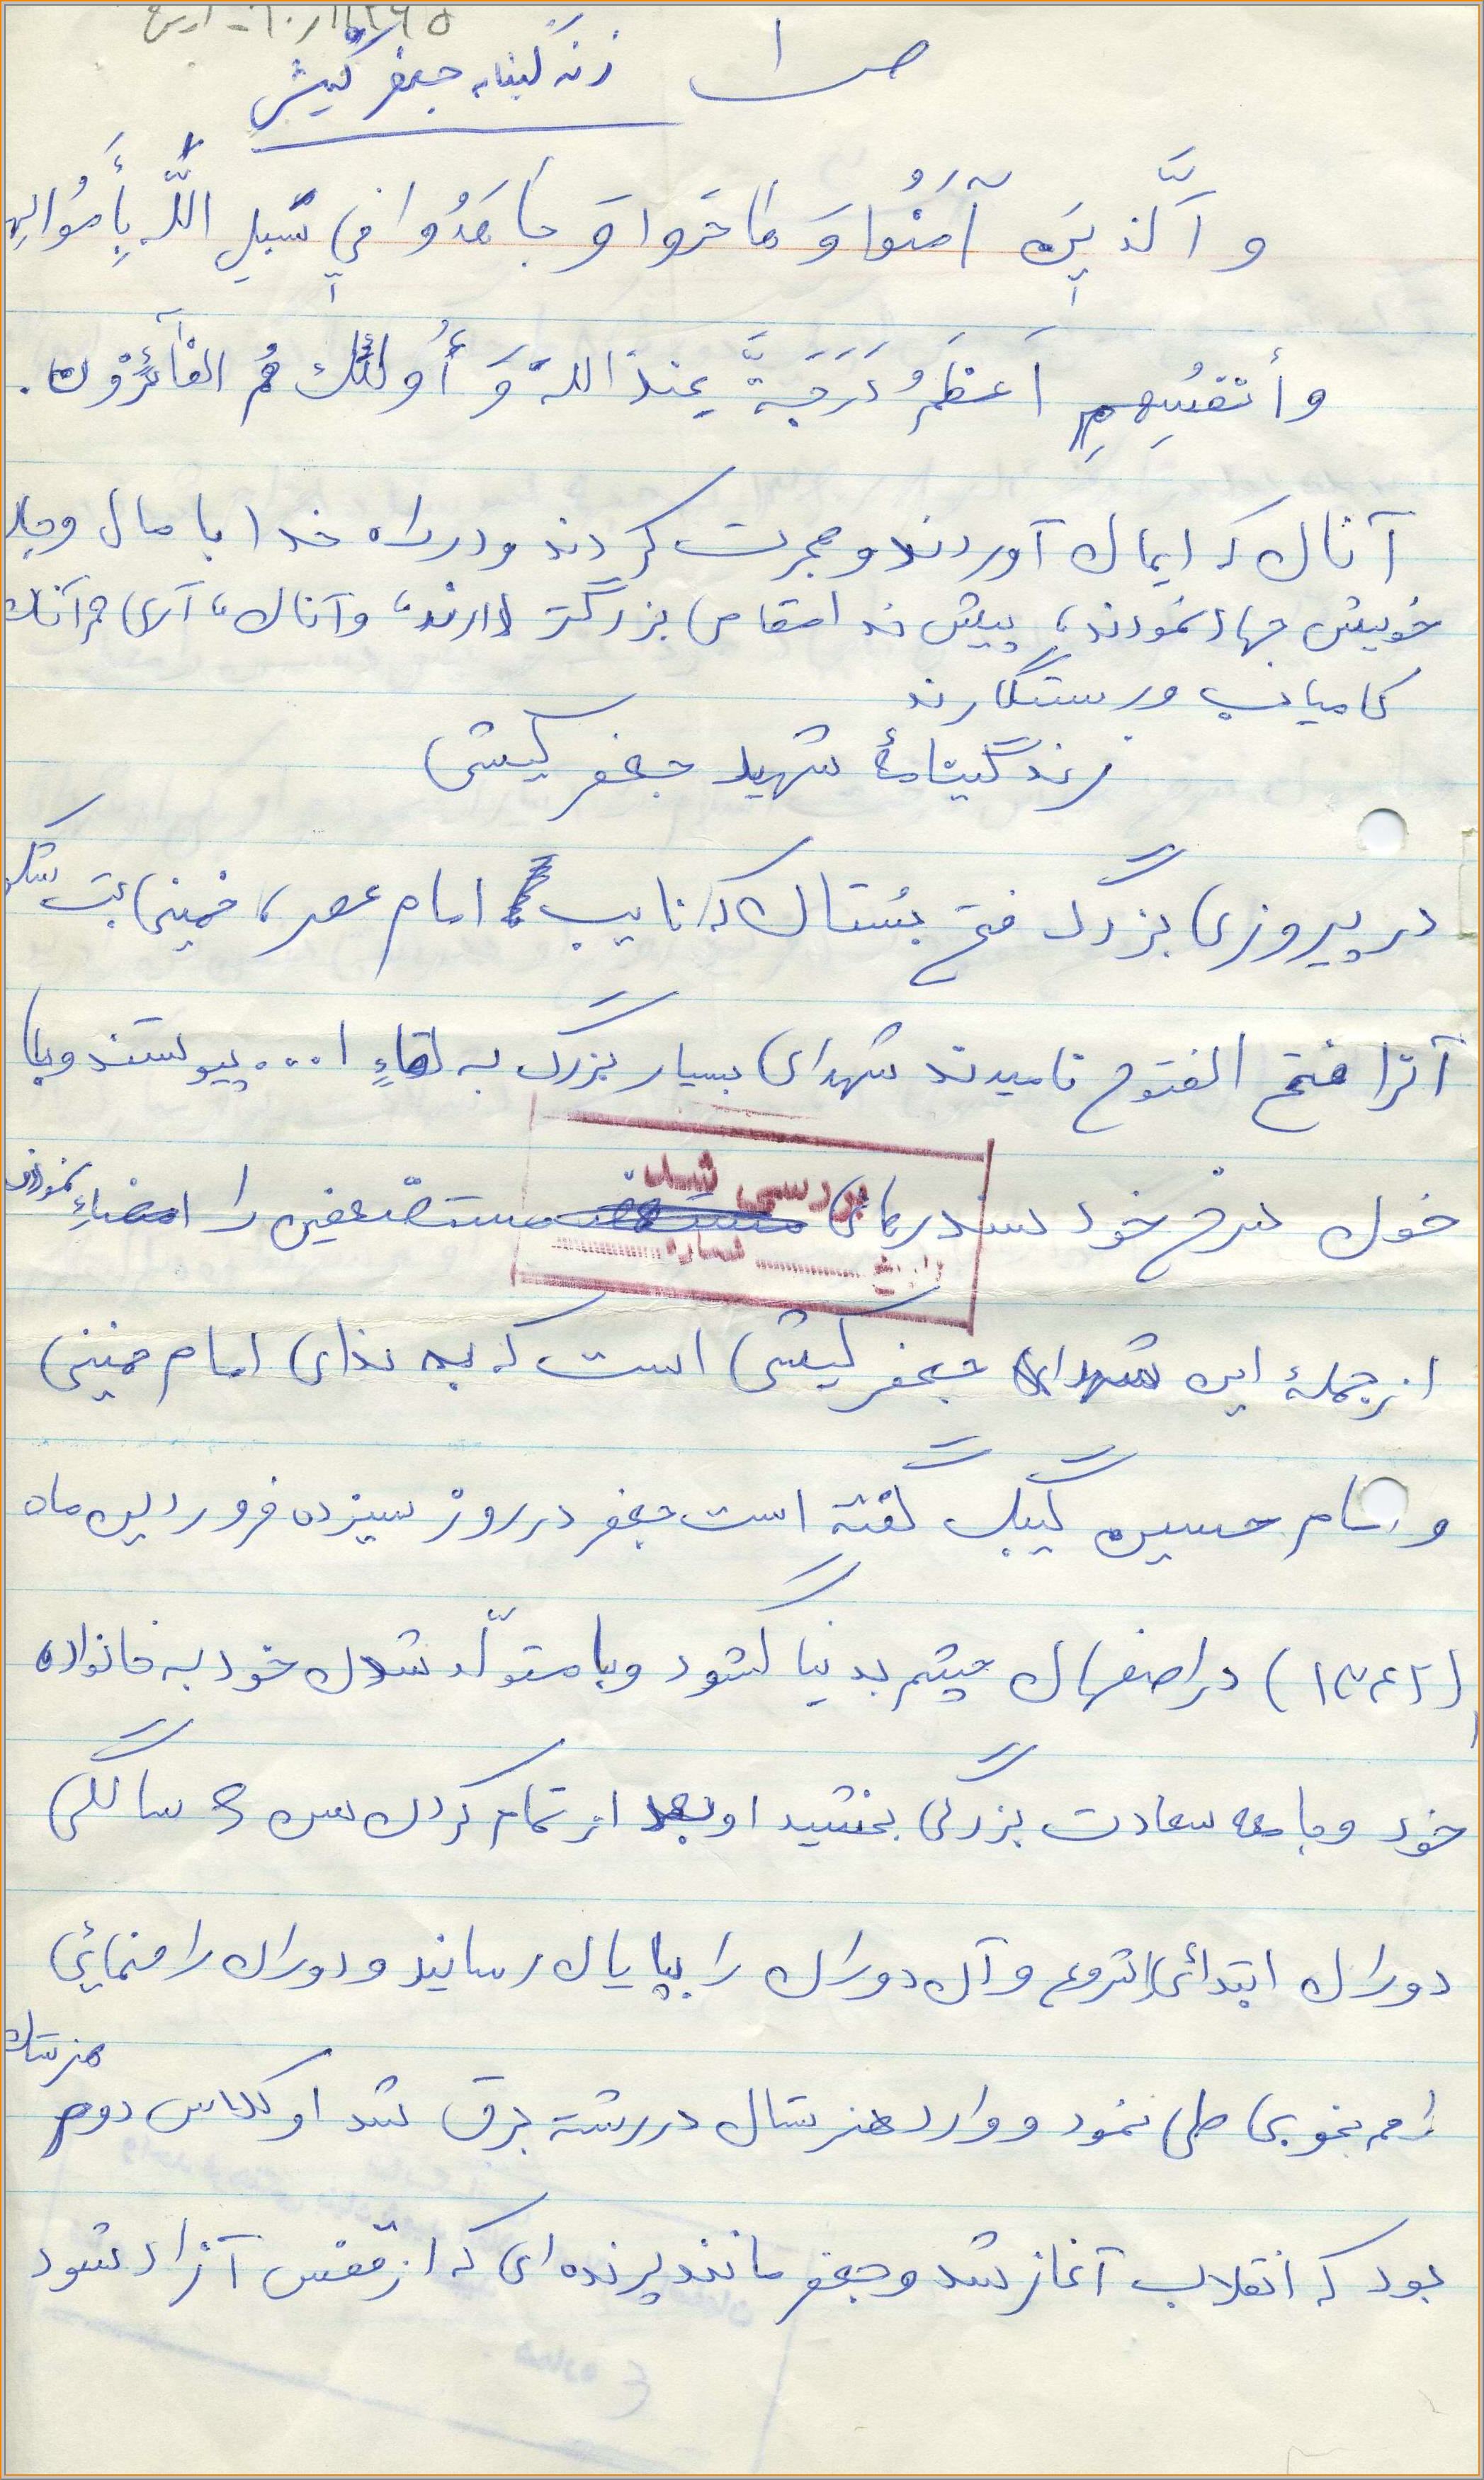 ص ۱
زندگینامه جعفر کیشی
وَ اَّلَذینَ آمَنُوا وَ هاجَروا وَ جاهَدُوا فِی سَبیلِ اللّهِ بِأَمْوُالِهِ
وأنفُسِهِمِ اَعظَمُ دَرَجَةَّ عِندَالله وَ أُولئِكَ هُمُ الفآئِزُون.
آنان که ایمان آوردند و هجرت کردند و در راه خدا با مال و جان
خویش جهاد نمودند، پیش خدا مقامی بزرگتر دارند، و آنان، آری هم آنان
کامیاب و رستگارند
زندگینامهٔ شهید جعفر کیشی
در پیروزی بزرگ فتح بُستان که نایب امام عصر، خمینی بت شکن
آنرا فتح الفتوح نامیدند شهدای بسیار بزرگ به لقاءِ ا... پیوستند و با
خون سرخ خود سند رهائی مستضعفین را امضاءِ نمودند
بررسی شد
تاریخ ........ شماره ........
از جملهٔ این شهدای جعفر کیشی است که به ندای امام خمینی
و امام حسین لَبیک گفته است جعفر در روز سیزده فروردین ماه
(۱۳۴۲) در اصفهان چشم بدنیا گشود و با متولّد شدن خود به خانواده
خود و جامعه سعادت بزرگی بخشید او بعد از تمام کردن سن ۶ سالگی
دوران ابتدائی را شروع و آن دوران را بپایان رسانید و دوران راهنمایی
را هم بخوبی طی نمود و وارد هنرستان در رشته برق شد او کلاس دوم هنرستان
بود که انقلاب آغاز شد و جعفر مانند پرنده ای که از قفس آزاد شود